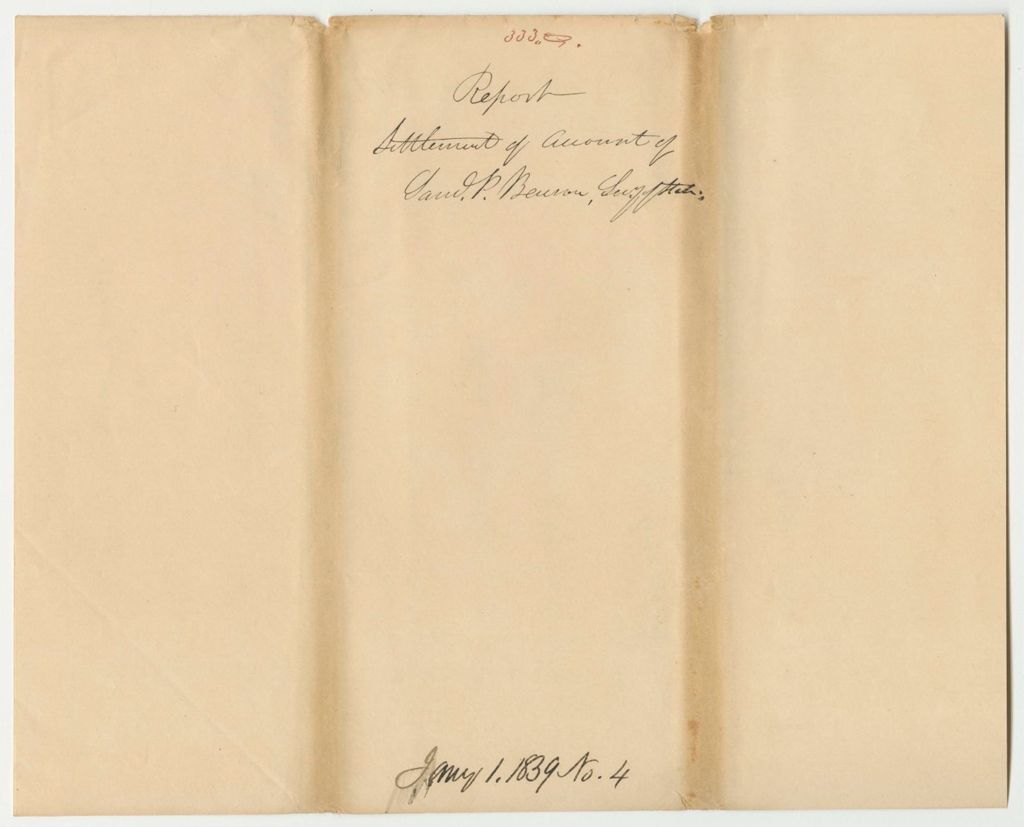 333.
Report
Settlement of Account of
Saml. P. Benson, Secy of State.
Jany 1. 1839 No. 4